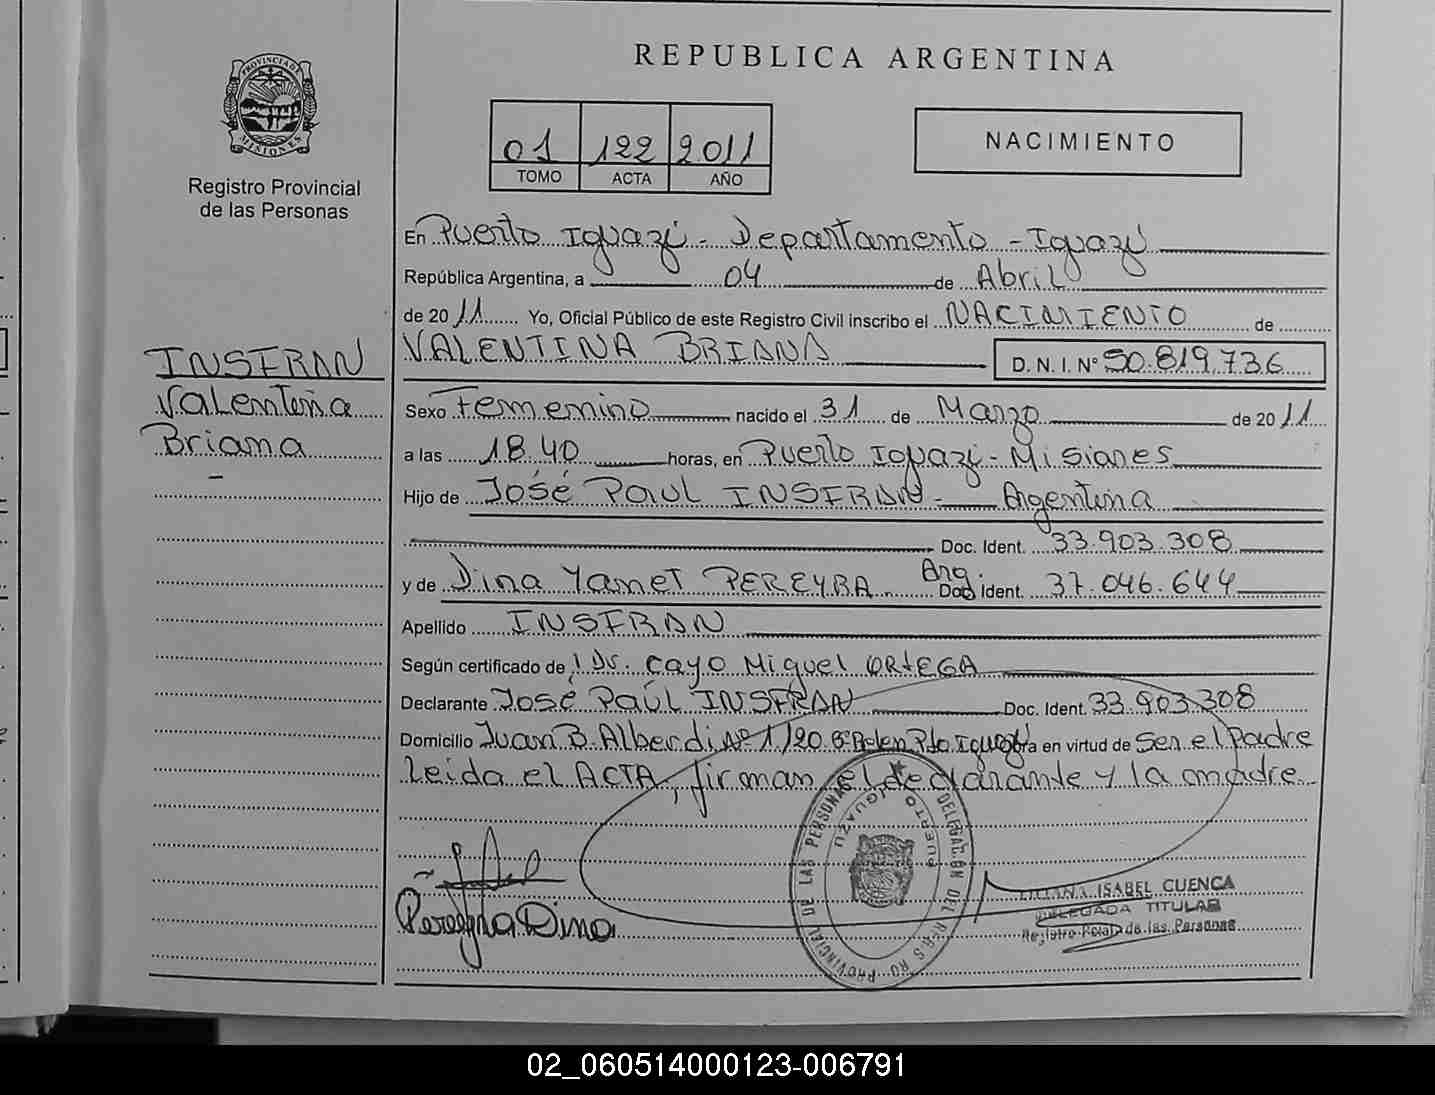 REPUBLICA ARGENTINA
PROVINCIA DE
MISIONES
Registro Provincial
de las Personas
01 122 2011
TOMO ACTA AÑO
NACIMIENTO
En Puerto Iguazú - Departamento - Iguazú
República Argentina, a 04 de Abril
de 2011 Yo, Oficial Público de este Registro Civil inscribo el NACIMIENTO de
VALENTINA BRIANA D. N. I. Nº 50.819.736
INSFRAN
Valentina
Briana
Sexo Femenino nacido el 31 de Marzo de 2011
a las 18.40 horas, en Puerto Iguazú - Misiones
Hijo de José Paul INSFRAN - Argentina
Doc. Ident. 33.903.308
y de Dina Yamet PEREYRA Arg. Doc. Ident. 37.046.644
Apellido INSFRAN
Según certificado de Dr. Cayo Miguel ORTEGA
Declarante José Paúl INSFRAN Doc. Ident. 33.903.308
Domicilio Juan B. Alberdi Nº 1120 Bº Belen Pto Iguazú en virtud de Ser el Padre
Leida el ACTA, firman el declarante y la madre
DELEGACION DEL REGISTRO PROVINCIAL DE LAS PERSONAS
PUERTO IGUAZU
Dina
LILIANA ISABEL CUENCA
DELEGADA TITULAR
de las Personas
02_060514000123-006791